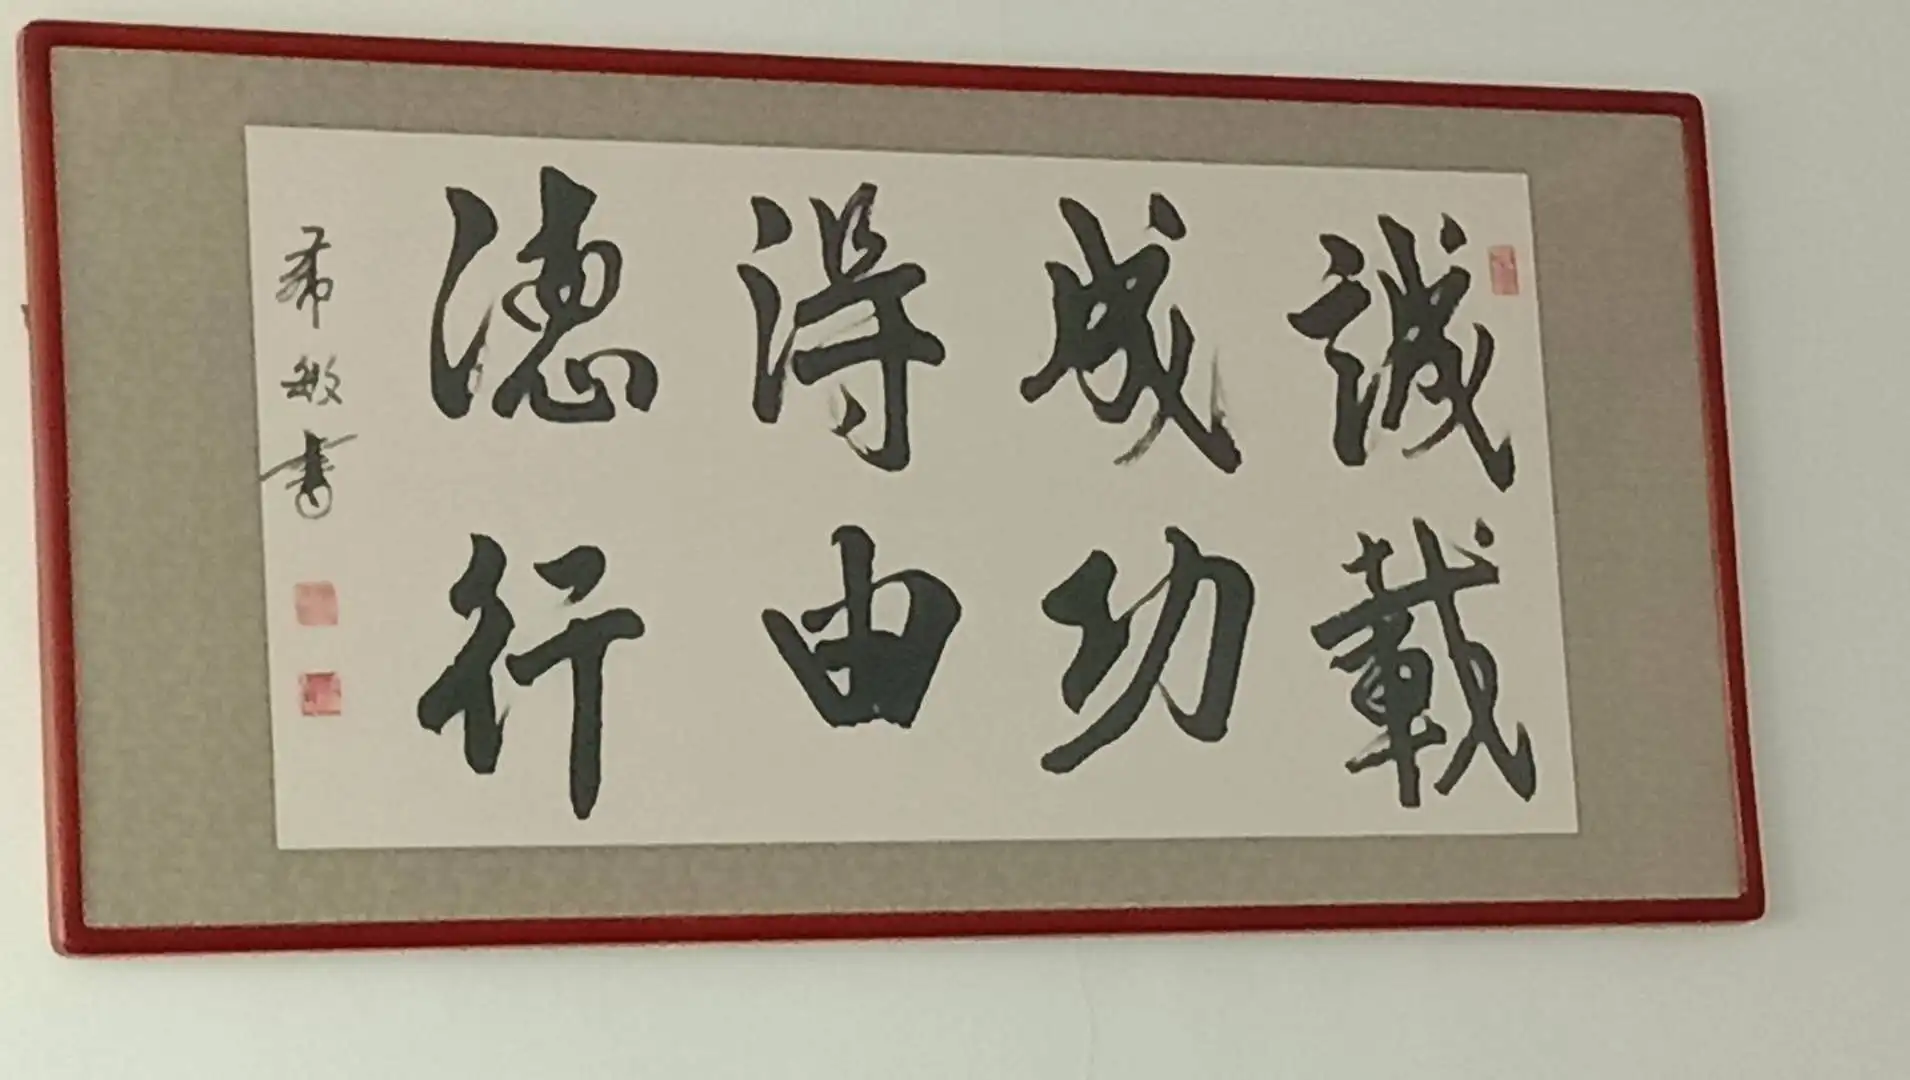 誠載
成功
得由
德行
希敏書